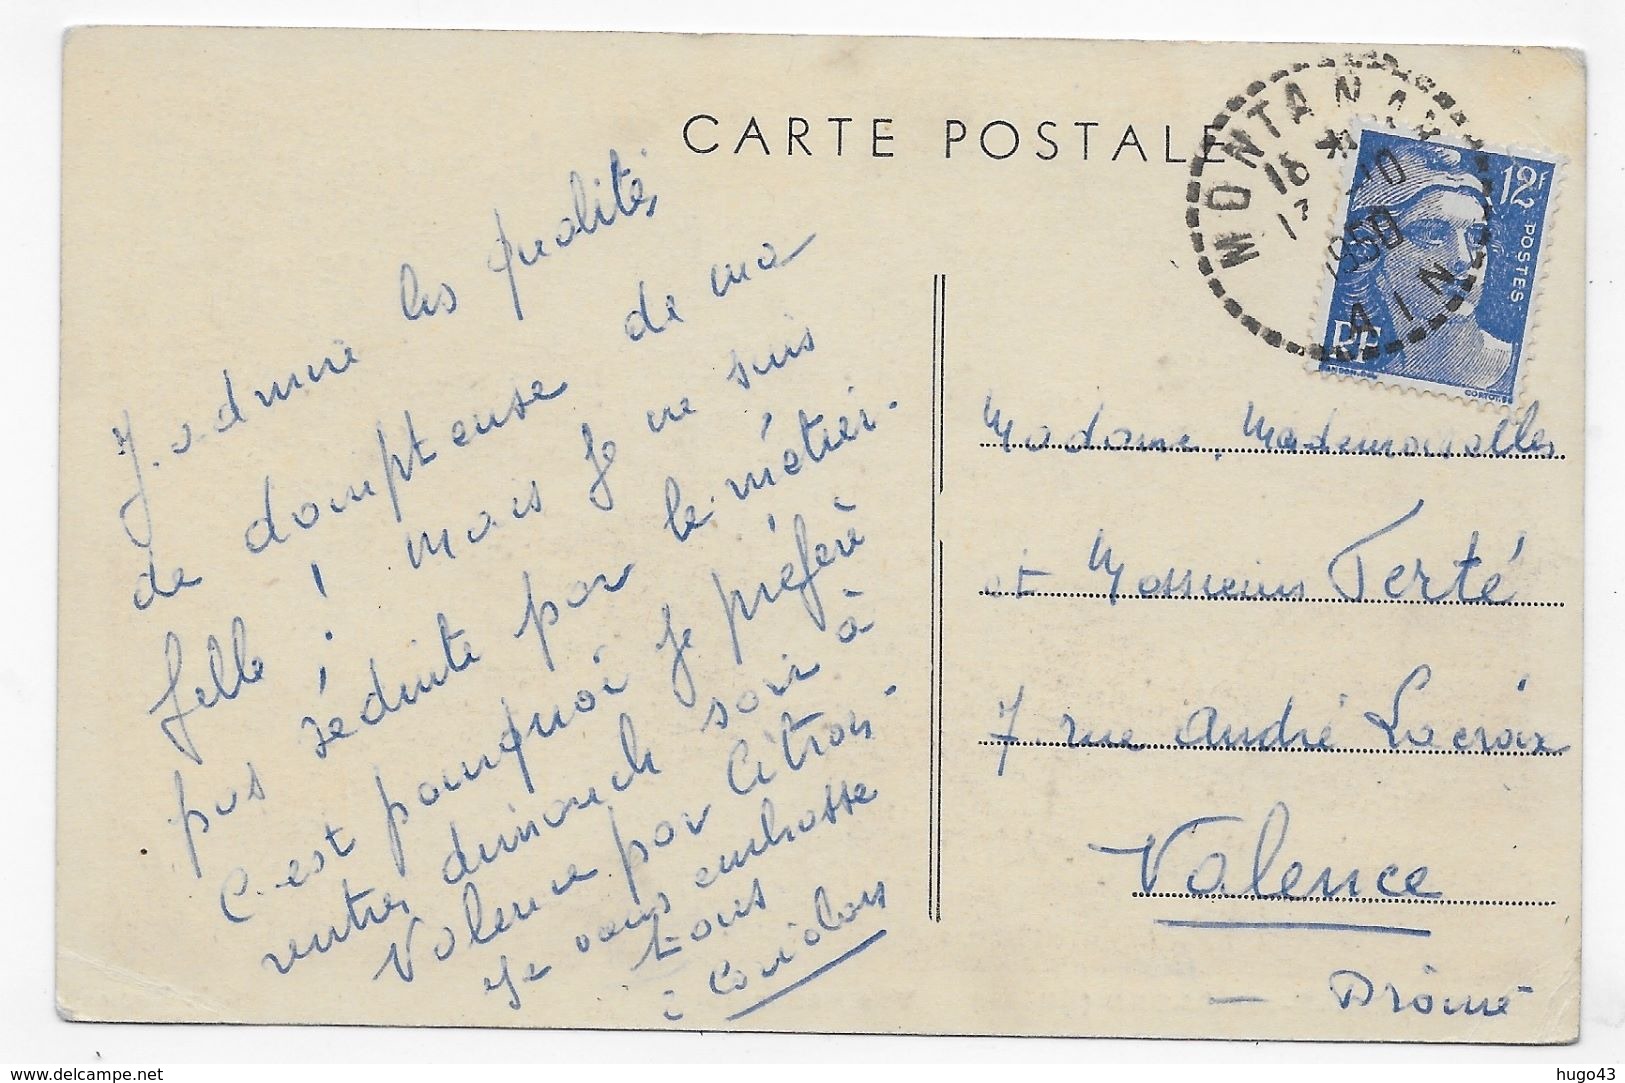 CARTE POSTALE
MONTANAY
18 *
-10
1950
AIN
12F
POSTES
RF
GANDON.DEL
CORTOT.SC
J'admire les qualités
de dompteuse de ma
fille ! mais je ne suis
pas séduite par le métier.
C'est pourquoi je préfère
rentrer dimanche soir à
Valence par Citron.
Je vous embrasse
tous
Madame, Mademoiselles
et Messieurs Terté
7 rue André Lacroix
Valence
— Drôme
hugo43
www.delcampe.net